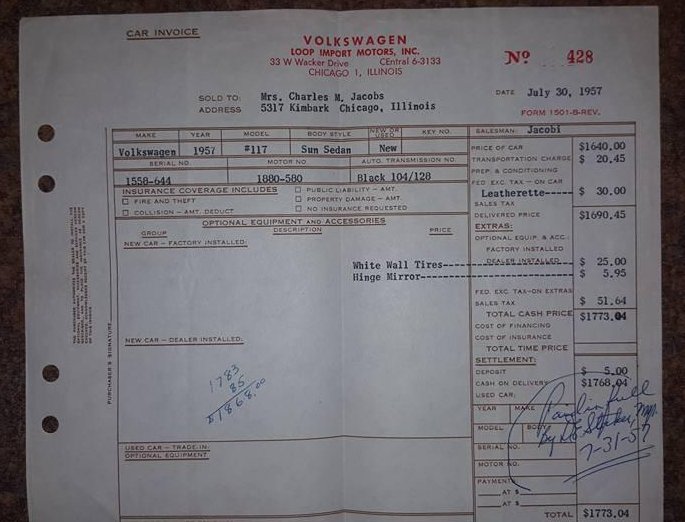 CAR INVOICE
VOLKSWAGEN
LOOP IMPORT MOTORS, INC.
33 W Wacker Drive CEntral 6-3133
CHICAGO 1, ILLINOIS
Nº 428
SOLD TO: Mrs. Charles M. Jacobs
ADDRESS 5317 Kimbark Chicago, Illinois
DATE July 30, 1957
FORM 1501-8-REV.
MAKE YEAR MODEL BODY STYLE NEW OR USED KEY NO.
Volkswagen 1957 #117 Sun Sedan New
SERIAL NO. MOTOR NO. AUTO. TRANSMISSION NO.
1558-644 1880-580 Black 104/128
INSURANCE COVERAGE INCLUDES
FIRE AND THEFT
COLLISION - AMT. DEDUCT
PUBLIC LIABILITY - AMT.
PROPERTY DAMAGE - AMT.
NO INSURANCE REQUESTED
OPTIONAL EQUIPMENT AND ACCESSORIES
GROUP DESCRIPTION PRICE
NEW CAR - FACTORY INSTALLED:
White Wall Tires
Hinge Mirror
NEW CAR - DEALER INSTALLED:
1783
85
$1868.00
USED CAR - TRADE-IN:
OPTIONAL EQUIPMENT
PURCHASER'S SIGNATURE
SALESMAN: Jacobi
PRICE OF CAR $1640.00
TRANSPORTATION CHARGE $ 20.45
PREP. & CONDITIONING
FED. EXC. TAX-ON CAR
Leatherette----- $ 30.00
SALES TAX
DELIVERED PRICE $1690.45
EXTRAS:
OPTIONAL EQUIP. & ACC.:
FACTORY INSTALLED
DEALER INSTALLED $ 25.00
$ 5.95
FED. EXC. TAX-ON EXTRAS
SALES TAX $ 51.64
TOTAL CASH PRICE $1773.04
COST OF FINANCING
COST OF INSURANCE
TOTAL TIME PRICE
SETTLEMENT:
DEPOSIT $ 5.00
CASH ON DELIVERY $1768.04
USED CAR:
YEAR MAKE
MODEL BODY
SERIAL NO.
MOTOR NO.
PAYMENTS
AT $
AT $
Paid in full
by
7-31-57
TOTAL $1773.04